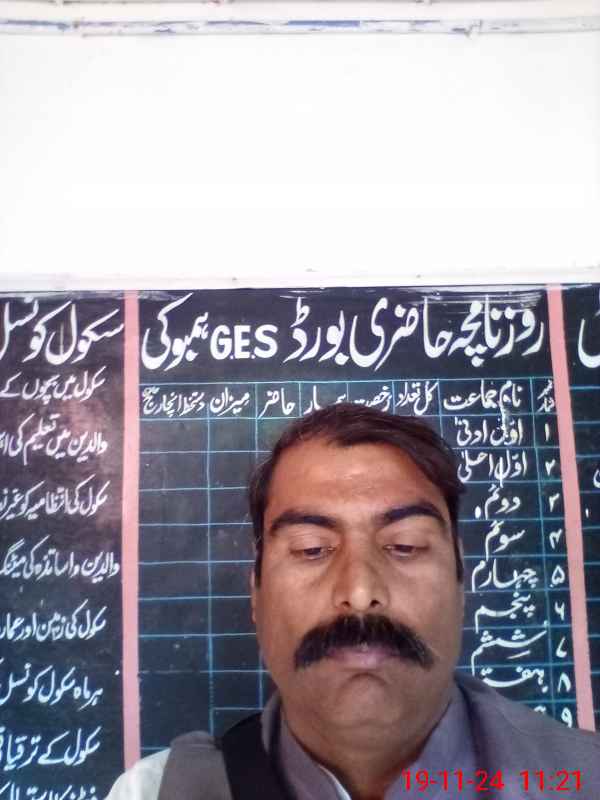 روزنامچہ حاضری بورڈ G.E.S ہمبوکی
نمبر شمار نام جماعت کل تعداد رخصت بیمار حاضر میزان دستخط انچارج
۱ اوّل ادنیٰ
۲ اوّل اعلیٰ
۳ دوئم
۴ سوئم
۵ چہارم
۶ پنجم
۷ ششم
۸ ہفتم
۹
سکول کونسل
سکول میں بچوں کے
والدین میں تعلیم کی
سکول کی انتظامیہ کو غیر
والدین و اساتذہ کی میٹنگ
سکول کی زمین اور
ہر ماہ سکول کونسل
سکول کے ترقیاتی
19-11-24 11:21